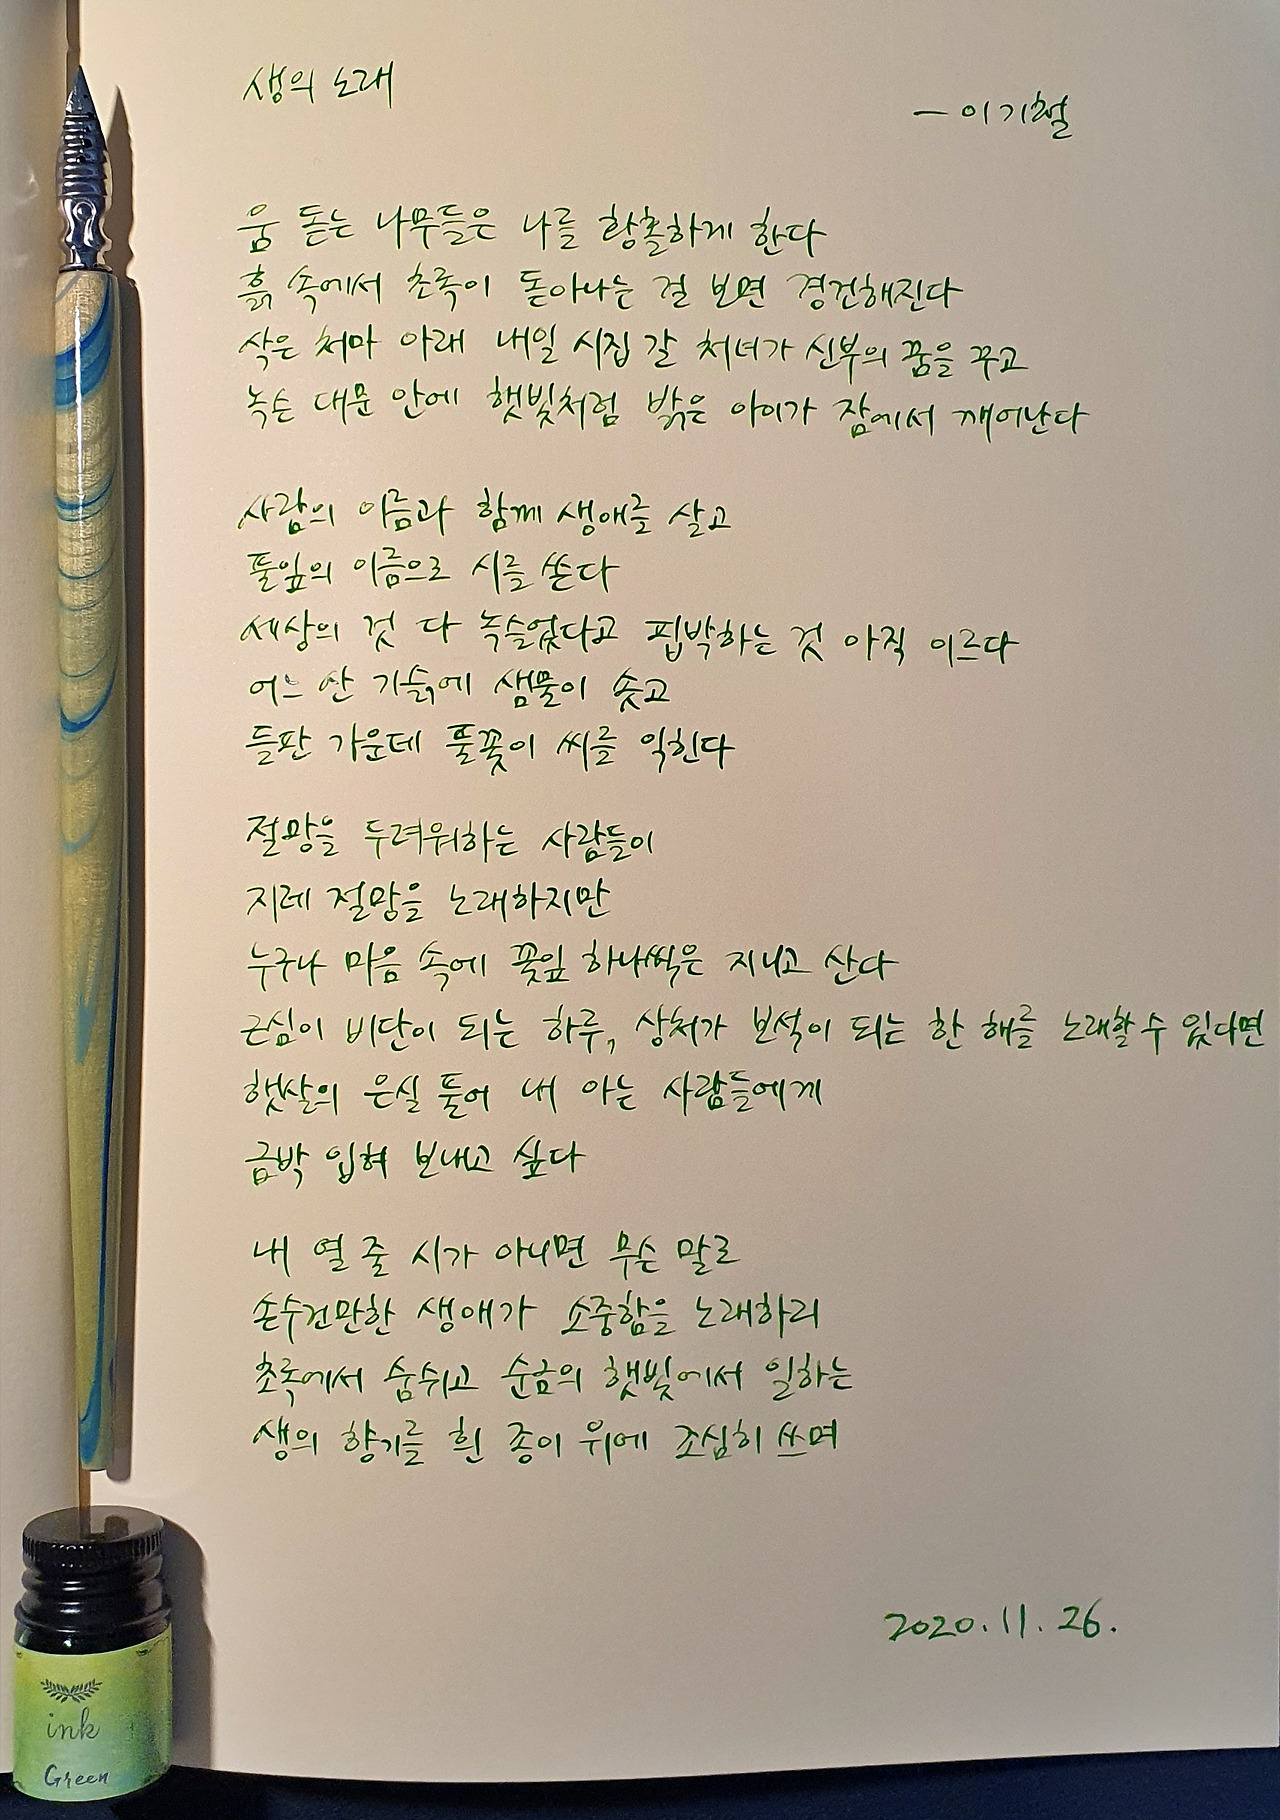 생의 노래
- 이기철
움 돋는 나무들은 나를 황홀하게 한다
흙 속에서 초록이 돋아나는 걸 보면 경건해진다
삭은 처마 아래 내일 시집 갈 처녀가 신부의 꿈을 꾸고
녹슨 대문 안에 햇빛처럼 밝은 아이가 잠에서 깨어난다
사람의 이름과 함께 생애를 살고
풀잎의 이름으로 시를 쓴다
세상의 것 다 녹슬었다고 핍박하는 것 아직 이르다
어느 산 기슭에 샘물이 솟고
들판 가운데 풀꽃이 씨를 익힌다
절망을 두려워하는 사람들이
지레 절망을 노래하지만
누구나 마음 속에 꽃잎 하나씩은 지니고 산다
근심이 비단이 되는 하루, 상처가 보석이 되는 한 해를 노래할 수 있다면
햇살의 은실 풀어 내 아는 사람들에게
금박 입혀 보내고 싶다
내 열 줄 시가 아니면 무슨 말로
손수건만한 생애가 소중함을 노래하리
초록에서 숨쉬고 순금의 햇빛에서 일하는
생의 향기를 흰 종이 위에 조심히 쓰며
2020.11.26.
ink
Green